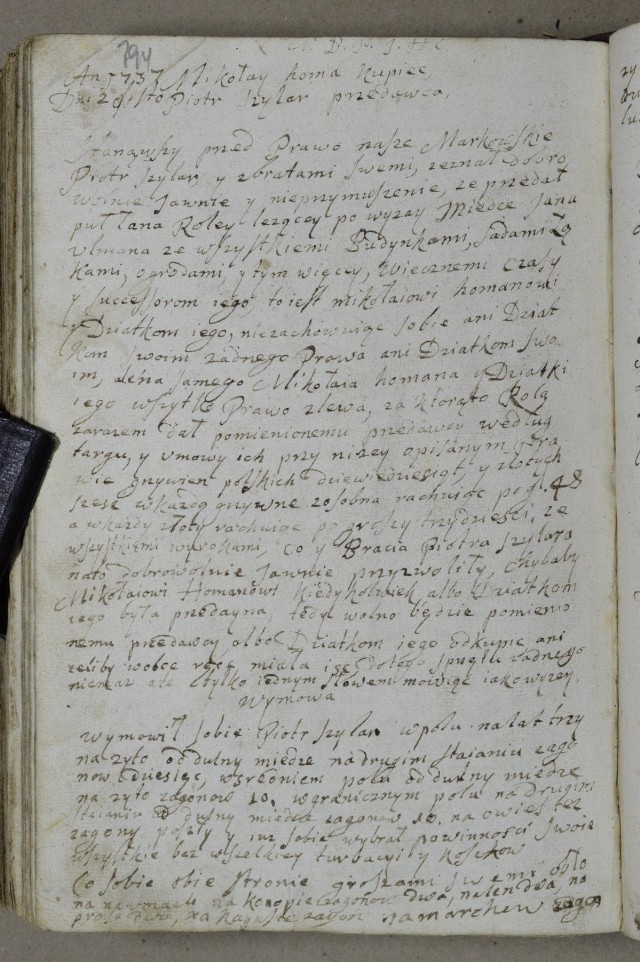 794
An 1737 Mikołay homa Kupiec,
Piotr szylar przedawca,
Stanąwszy przed Prawo nasze Markowskie
Piotr szylar y zbratami swemi, zeznał dobro
wolnie Jawnie y nieprzymuszenie, ze przedał
puł łana Roley lezącey po wyzay Miedze Jana
Ulmana ze wszystkiemi Budynkami, sadami Łą
kami, ogrodami, y tym więcey, wiecznemi czasy
y successorom iego, to iest mikołaiowi homanowi
y Dziatkom iego, niezachowuiąc sobie ani Dziat
kom swoim zadnego Prawa ani Dziatkom swo
im, ale na samego Mikołaia homana y Dziatki
iego wszytko Prawo zlewa, za ktorąto Rolą
zarazem dał pomienionemu przedawcy według
targu, y umowy ich przy nizey opisanym Pra
wie grzywien polskich dziewiedziesiąt, y złotych
szesc w kazdą grzywne zosobna rachuiąc po gl. 48
a wkazdy złoty rachuiąc po groszy trzydziesci, ze
wszystkiemi wyrokami, co y Bracia Piotra szylara
nato dobrowolnie Jawnie przyzwoliły, chybaby
Mikołaiowi Homanowi kiedykolwiek albo Dziatkom
iego była przedayna, tedy wolno będzie pomienio
nemu przedawcy albo Dziatkom iego odkupic ani
zeliby wobce ręce miała isc dotego spustu zadnego
niemasz ale tylko iednym słowem mowiąc iako wyzey,
Wymowa
Wymowił sobie Piotr szylar wpolu na lat trzy
na zyto od dulny miedze nadrugim staianiu zago
now dziesięc, wsredniem polu od dulny miedze
na zyto zagonow 10, wgranicznym polu nadrugim
staianiu od dulny miedze zagonow 10, na owies tez
zagony poszły y iuz sobie wybrał powinnosci swoie
wszystkie bez wszelkiey turbacyi y kosztow
Co sobie obie stronie groszami swemi oblo
na konopie zagonow dwa, na len dwa, na
proso dwa, na kapuste zagon na marchew zagon